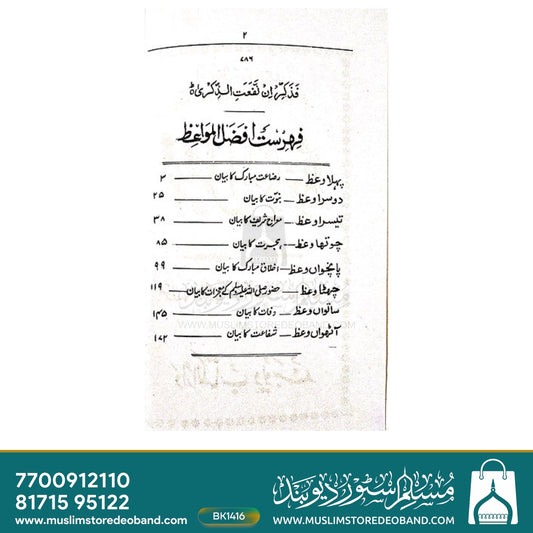 ۲
۷۸۶
فَذَكِّرْ اِنْ نَّفَعَتِ الذِّكْرٰى ۵
فہرست افضل المواعظ
پہلا وعظ — رضاعت مبارک کا بیان — ۳
دوسرا وعظ — نبوّت کا بیان — ۲۵
تیسرا وعظ — معراج شریف کا بیان — ۳۸
چوتھا وعظ — ہجرت کا بیان — ۸۵
پانچواں وعظ — اخلاق مبارک کا بیان — ۹۹
چھٹا وعظ — حضور صلی اللہ علیہ وسلم کے معجزات کا بیان — ۱۱۹
ساتواں وعظ — وفات کا بیان — ۱۴۵
آٹھواں وعظ — شفاعت کا بیان — ۱۷۲
مسلم سٹور دیوبند
WWW.MUSLIMSTOREDEOBAND.COM
7700912110
81715 95122
www.muslimstoredeoband.com
BK1416
مسلم سٹور دیوبند
WWW.MUSLIMSTOREDEOBAND.COM